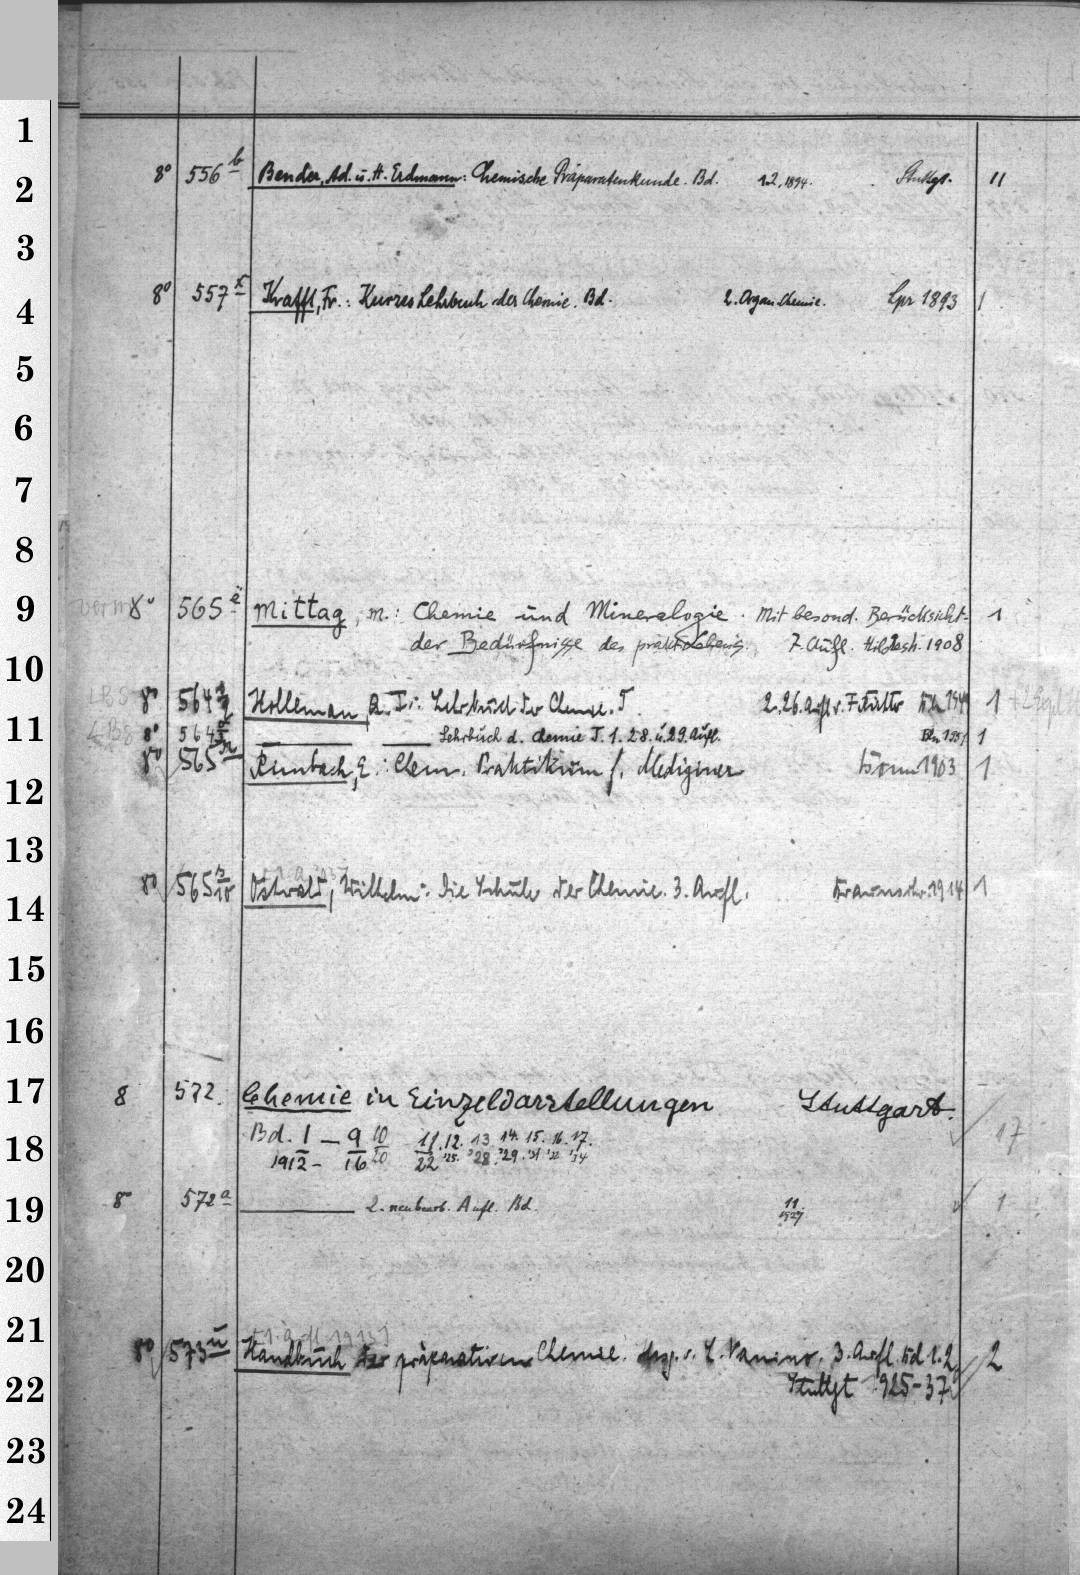 1
2
8° 556 b Bender, Ad. u. H. Erdmann: Chemische Präparatenkunde. Bd. 1.2, 1894. Stuttgt. 11
3
8° 557 x Krafft, Fr.: Kurzes Lehrbuch der Chemie. Bd. 2. Organ. Chemie. Lpz 1893 1
4
5
6
7
8
9
8° 565 Mittag, M.: Chemie und Mineralogie. Mit besond. Berücksicht. 1
der Bedürfnisse des prakt. Lebens. 7. Aufl. Hildesh. 1908
10
8° 564 Holleman, A. F.: Lehrbuch der Chemie. T. 2. 26. Aufl. v. F. Richter 1
11
8° 564 Lehrbuch d. Chemie T. 1. 28. u. 29. Aufl. Bln 1
8° 565 n Rimbach, E.: Chem. Praktikum f. Mediziner Bonn 1903 1
12
13
8° 565 Ostwald, Wilhelm: Die Schule der Chemie. 3. Aufl. Braunschw. 1914 1
14
15
16
17
8 572. Chemie in Einzeldarstellungen Stuttgart.
Bd. 1 — 9 10 11. 12. 13 14. 15. 16. 17. 17
1912 – 16 20 22 '25. '28. '29. '31 '32 '34
18
8° 572 a 2. neubearb. Aufl. Bd. 11. 1927 1
19
20
21
8° 573 u Handbuch der präparativen Chemie. Hrsg. v. L. Vanino. 3. Aufl. Bd 1. 2 2
Stuttgt 925-37
22
23
24